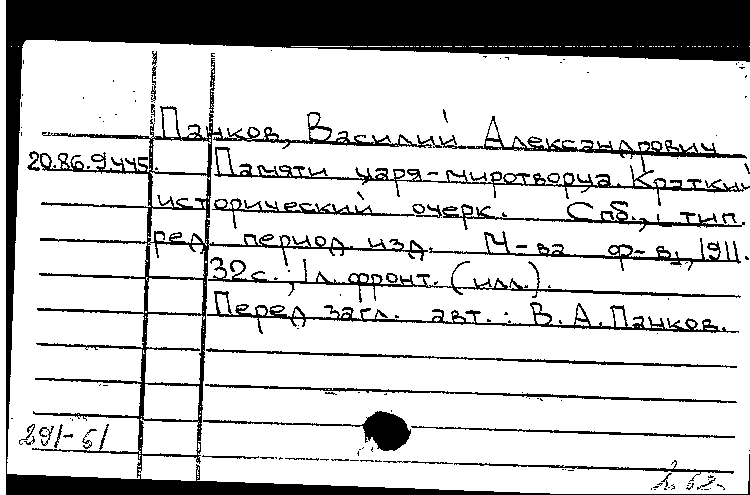 Панков, Василий Александрович
20.86.9445. Памяти царя-миротворца. Краткий
исторический очерк. Спб., тип.
ред. период. изд. М-ва ф-в, 1911.
32с.; 1л. фронт. (илл.).
Перед загл. авт.: В.А.Панков.
291-61